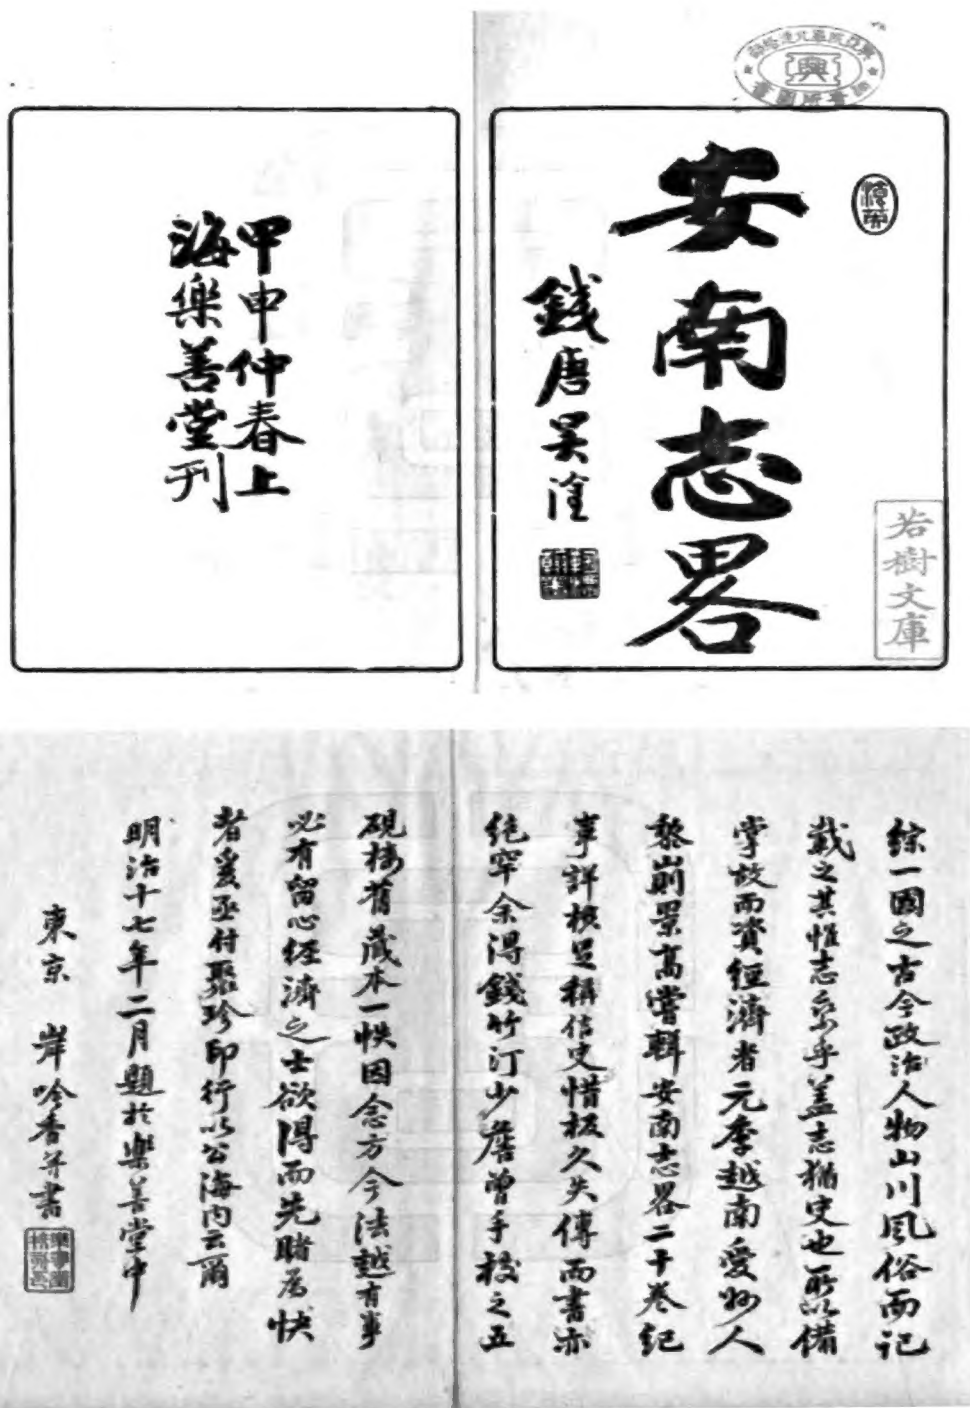 安南志畧
錢唐吴淦
若樹文庫
甲申仲春上
海樂善堂刊
綜一國之古今政治人物山川風俗而記
載之其惟志乘乎蓋志猶史也所以備
掌故而資經濟者元季越南愛州人
黎崱景高嘗輯安南志畧二十卷紀
事詳核足稱信史惜板久失傳而書亦
絕罕余得錢竹汀少詹曾手校之五
硯樓舊藏本一帙因念方今法越有事
必有留心經濟之士欲得而先睹為快
者爰亟付聚珍印行以公海內云爾
明治十七年二月題於樂善堂中
東京 岸吟香并書